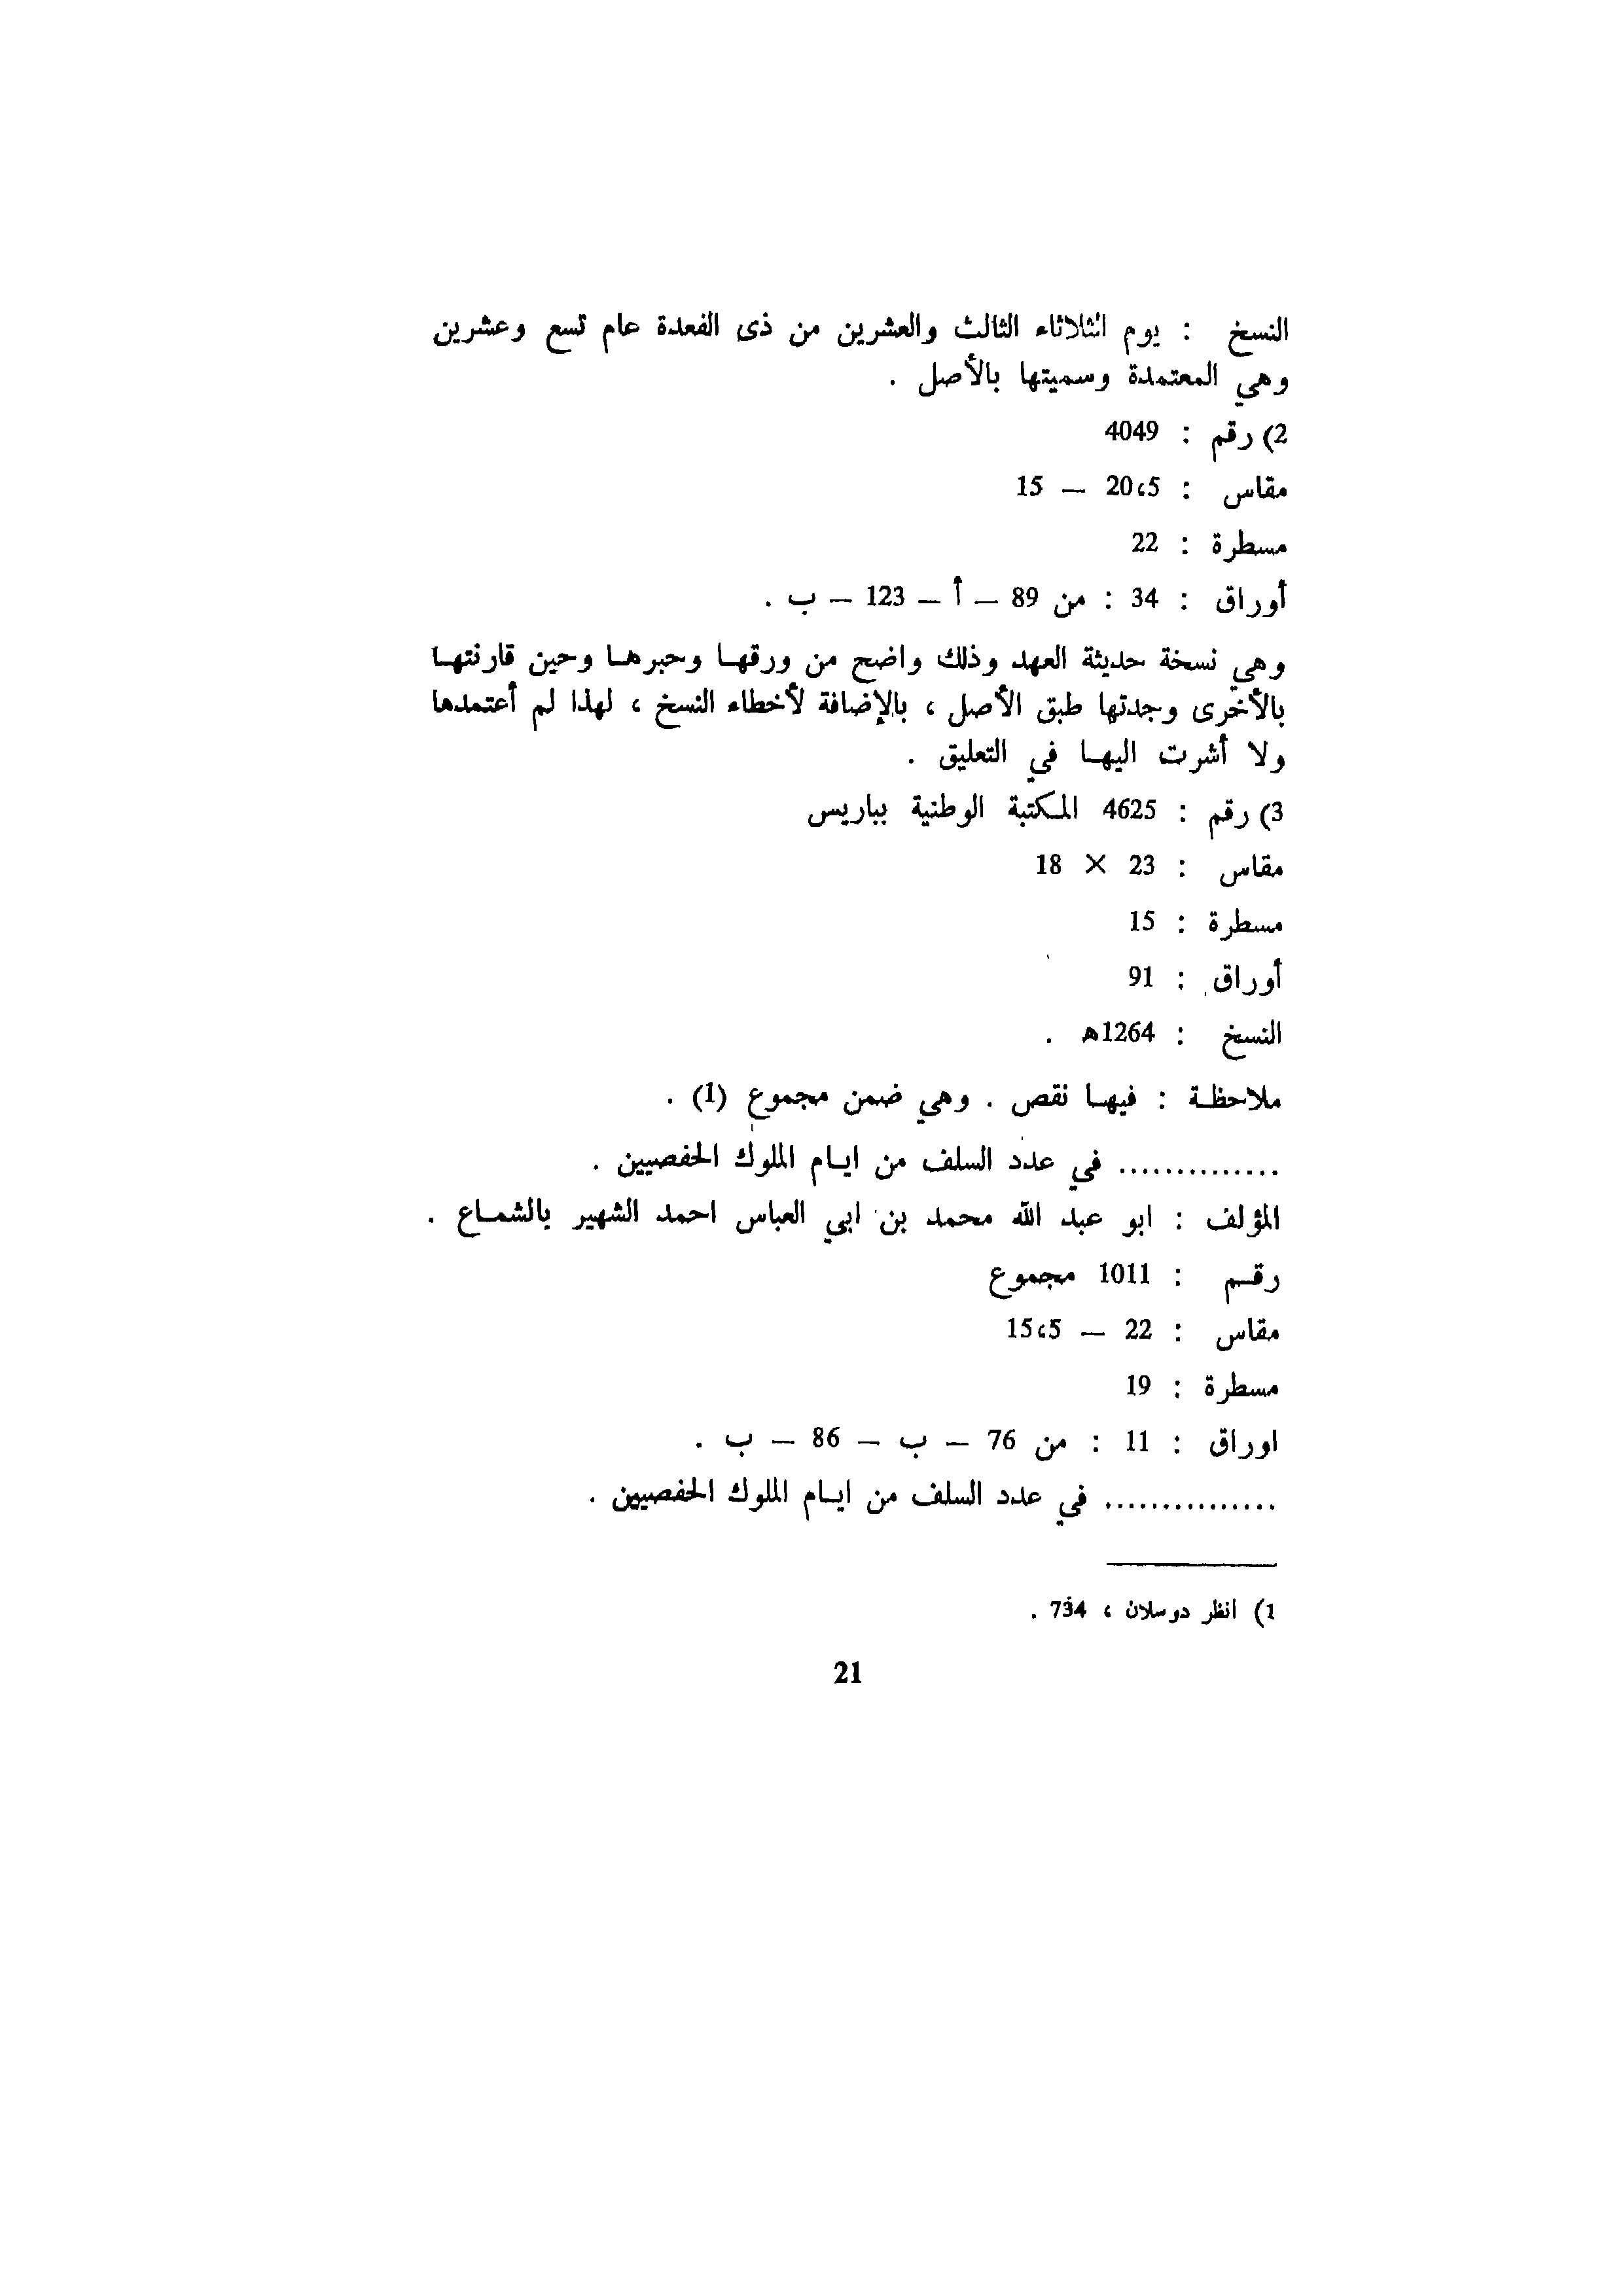 النسخ : يوم الثلاثاء الثالث والعشرين من ذى الفعدة عام تسع وعشرين
وهي المعتمدة وسميتها بالأصل .
2) رقم : 4049
مقاس : 20،5 — 15
مسطرة : 22
أوراق : 34 : من 89 — أ — 123 — ب .
وهي نسخة حديثة العهد وذلك واضح من ورقها وحبرها وحين قارنتها
بالأخرى وجدتها طبق الأصل ، بالإضافة لأخطاء النسخ ، لهذا لم أعتمدها
ولا أشرت اليها في التعليق .
3) رقم : 4625 المكتبة الوطنية بباريس
مقاس : 23 × 18
مسطرة : 15
أوراق : 91
النسخ : 1264ه .
ملاحظة : فيها نقص . وهي ضمن مجموع (1) .
.............. في عدد السلف من ايام الملوك الحفصيين .
المؤلف : ابو عبد الله محمد بن ابي العباس احمد الشهير بالشماع .
رقم : 1011 مجموع
مقاس : 22 — 15،5
مسطرة : 19
اوراق : 11 : من 76 — ب — 86 — ب .
............... في عدد السلف من ايام الملوك الحفصيين .
1) انظر دوسلان ، 734 .
21